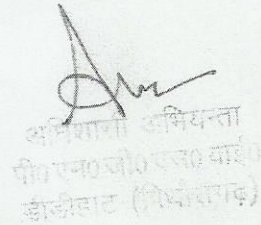 अधिशासी अभियन्ता
पी० एम० जी० एस० वाई०
डीडीहाट (पिथौरागढ़)